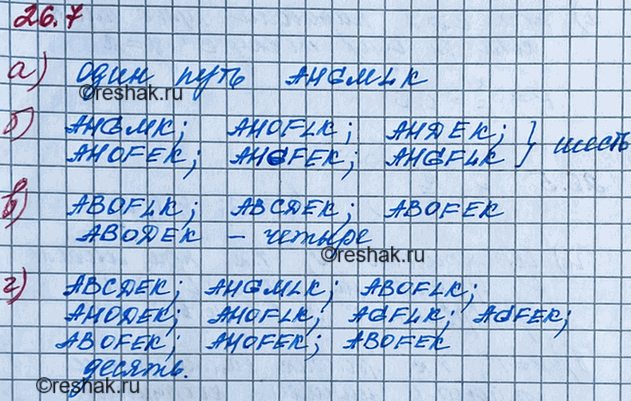 26.7
а) один путь AHGMLK
©reshak.ru
б) AHGMK; AHOFLK; AHDEK;
AHOFEK; AHGFEK; AHGFLK } шесть
в) ABOFLK; ABCDEK; ABOFEK
ABODEK – четыре
©reshak.ru
г) ABCDEK; AHGMLK; ABOFLK;
AHODEK; AHOFLK; AGFLK; AGFEK;
ABOFEK; AHOFEK; ABOFEK
десять.
©reshak.ru